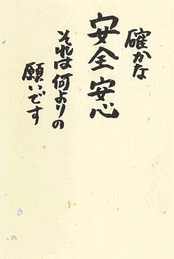 確かな
安全安心
それは何よりの
願いです